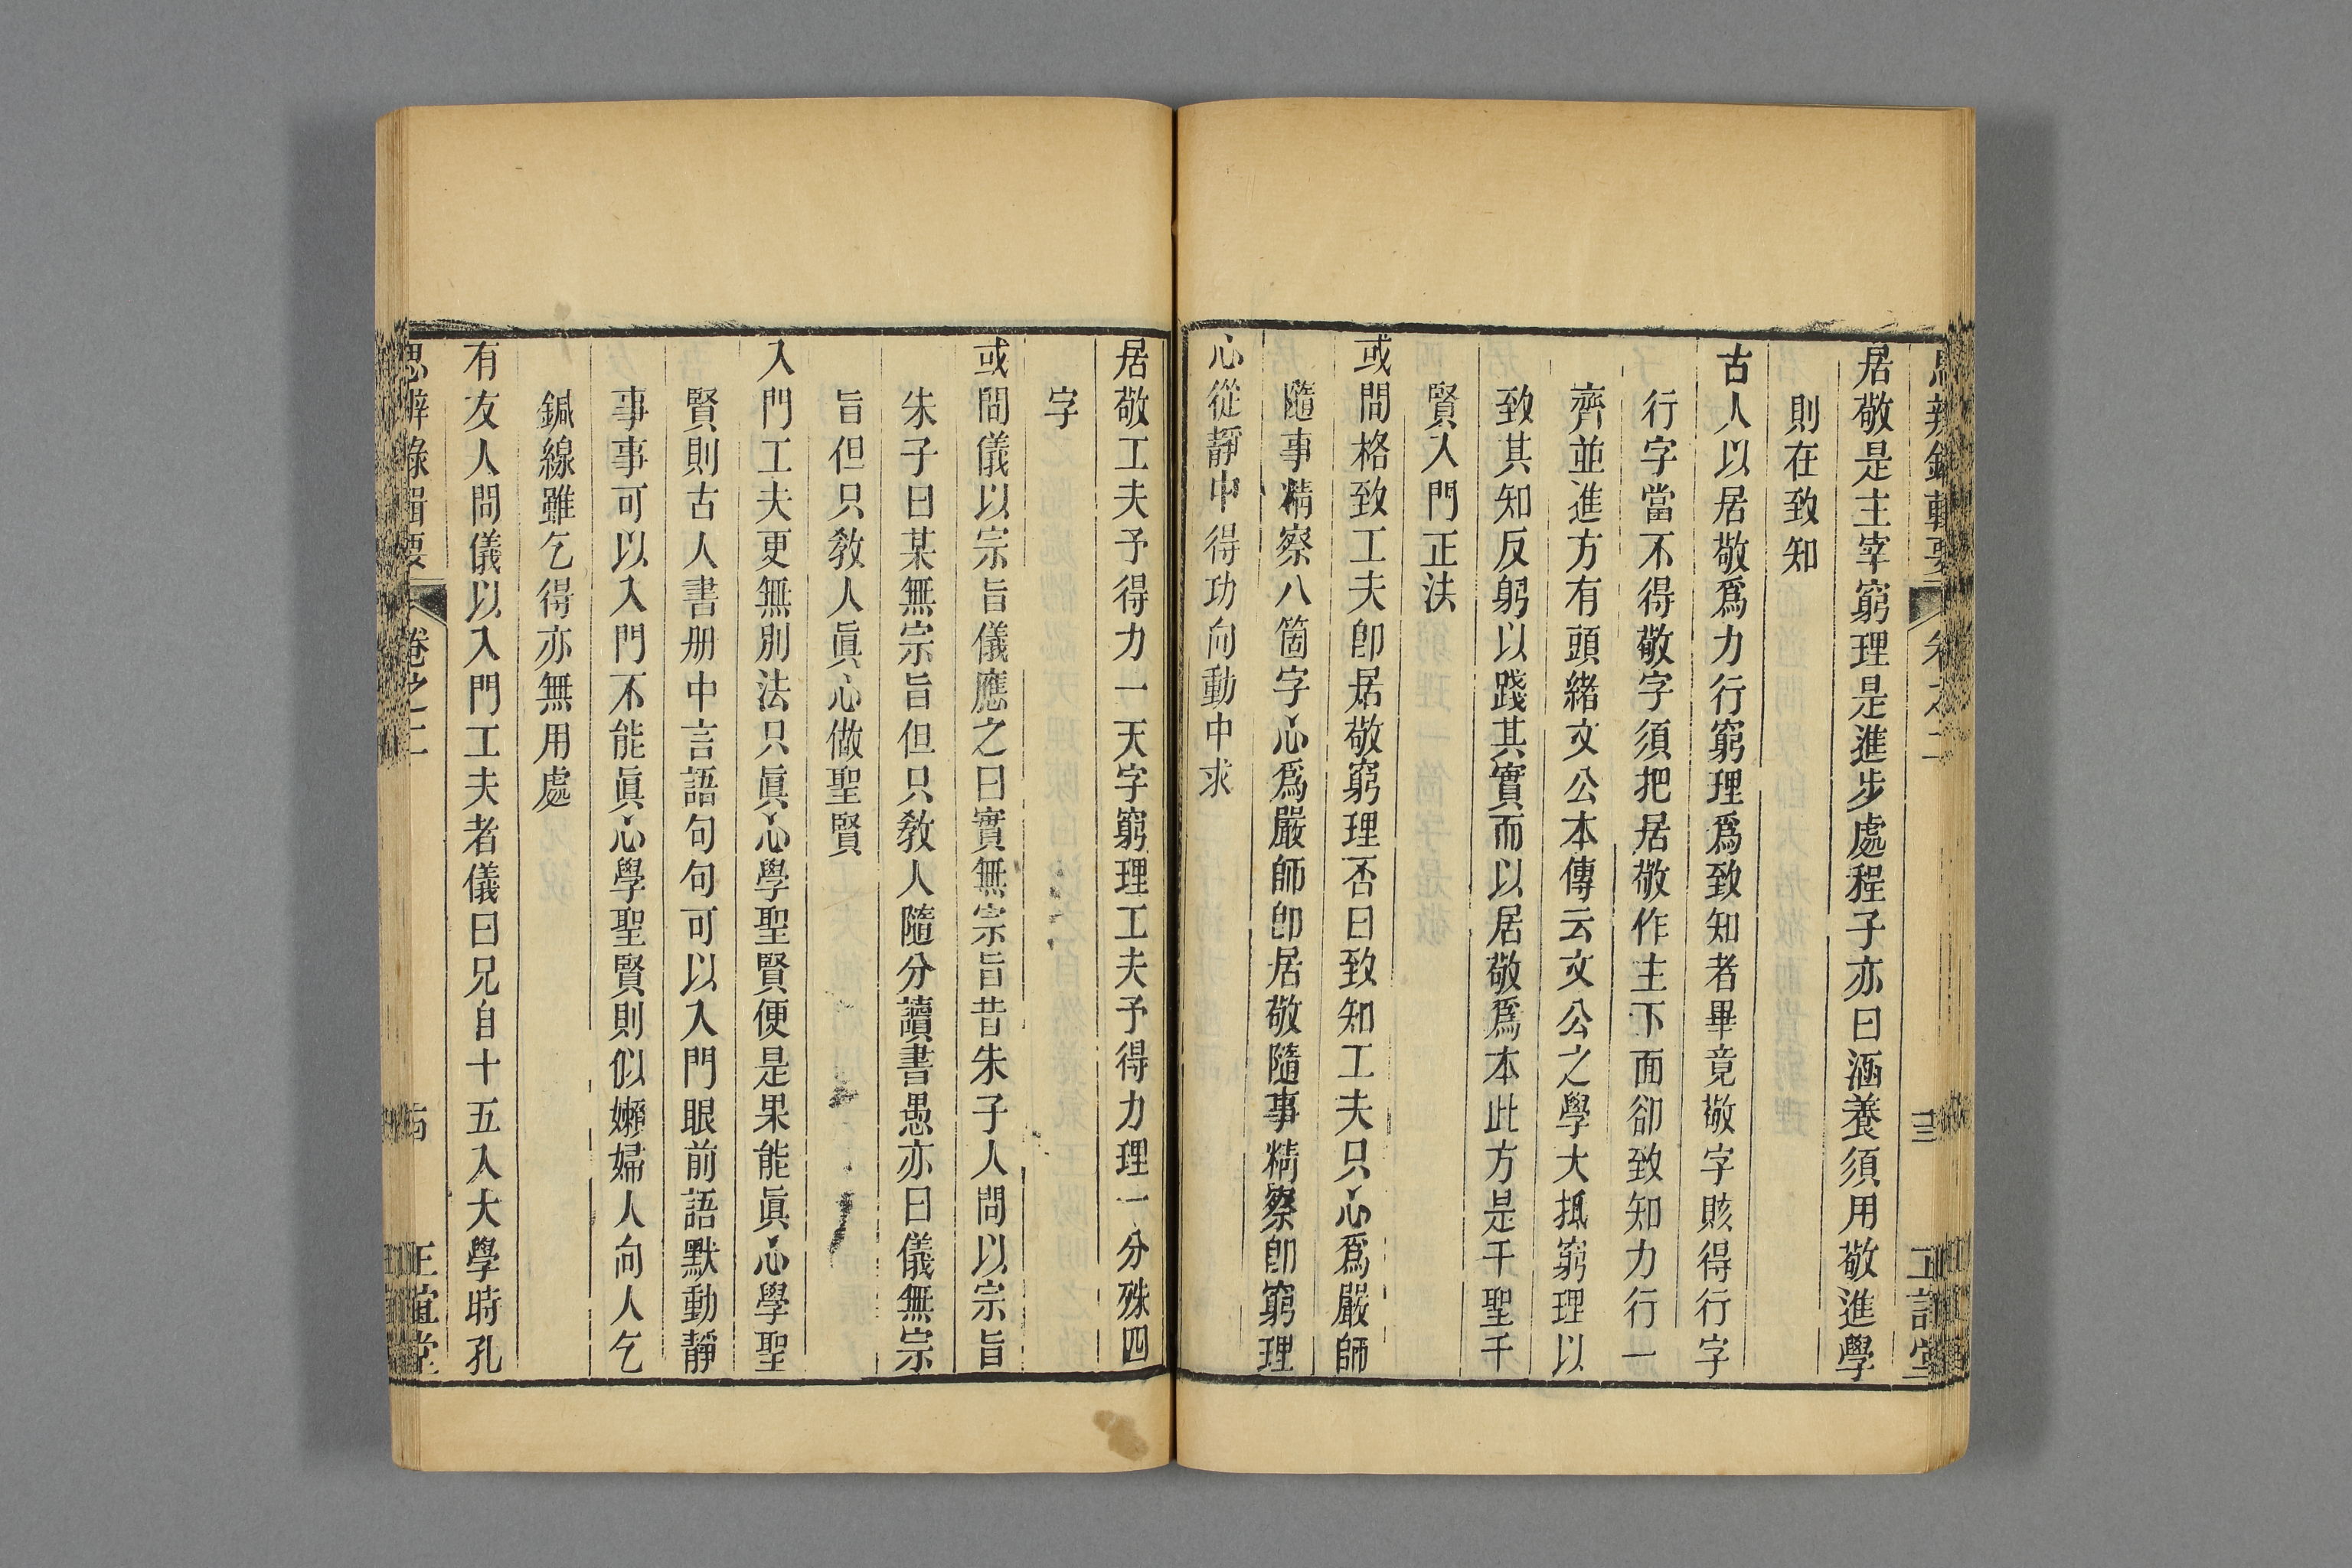 居敬是主宰窮理是進步處程子亦曰涵養須用敬進學
則在致知
古人以居敬爲力行窮理爲致知者畢竟敬字賅得行字
行字當不得敬字須把居敬作主下面卻致知力行一
齊並進方有頭緒文公本傳云文公之學大抵窮理以
致其知反躬以踐其實而以居敬爲本此方是千聖千
賢入門正法
或問格致工夫卽居敬窮理否曰致知工夫只心爲嚴師
隨事精察八箇字心爲嚴師卽居敬隨事精察卽窮理
心從靜中得功向動中求
居敬工夫予得力一天字窮理工夫予得力理一分殊四
字
或問儀以宗旨儀應之曰實無宗旨昔朱子人問以宗旨
朱子曰某無宗旨但只敎人隨分讀書愚亦曰儀無宗
旨但只敎人眞心做聖賢
入門工夫更無別法只眞心學聖賢便是果能眞心學聖
賢則古人書册中言語句句可以入門眼前語默動靜
事事可以入門不能眞心學聖賢則似嬾婦人向人乞
鍼線雖乞得亦無用處
有友人問儀以入門工夫者儀曰兄自十五入大學時孔
思辨錄輯要
卷之二
正誼堂